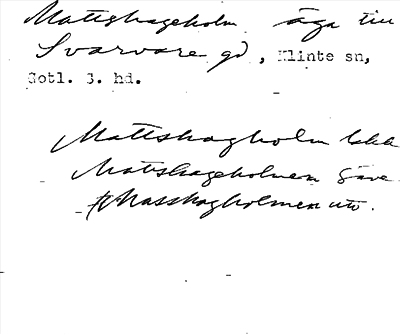 Mattshageholm äga till
Svarvare gd, Klinte sn,
Gotl. S. hd.
Mattshagholm
Mattshageholmen Save
Masshagholmen utt.